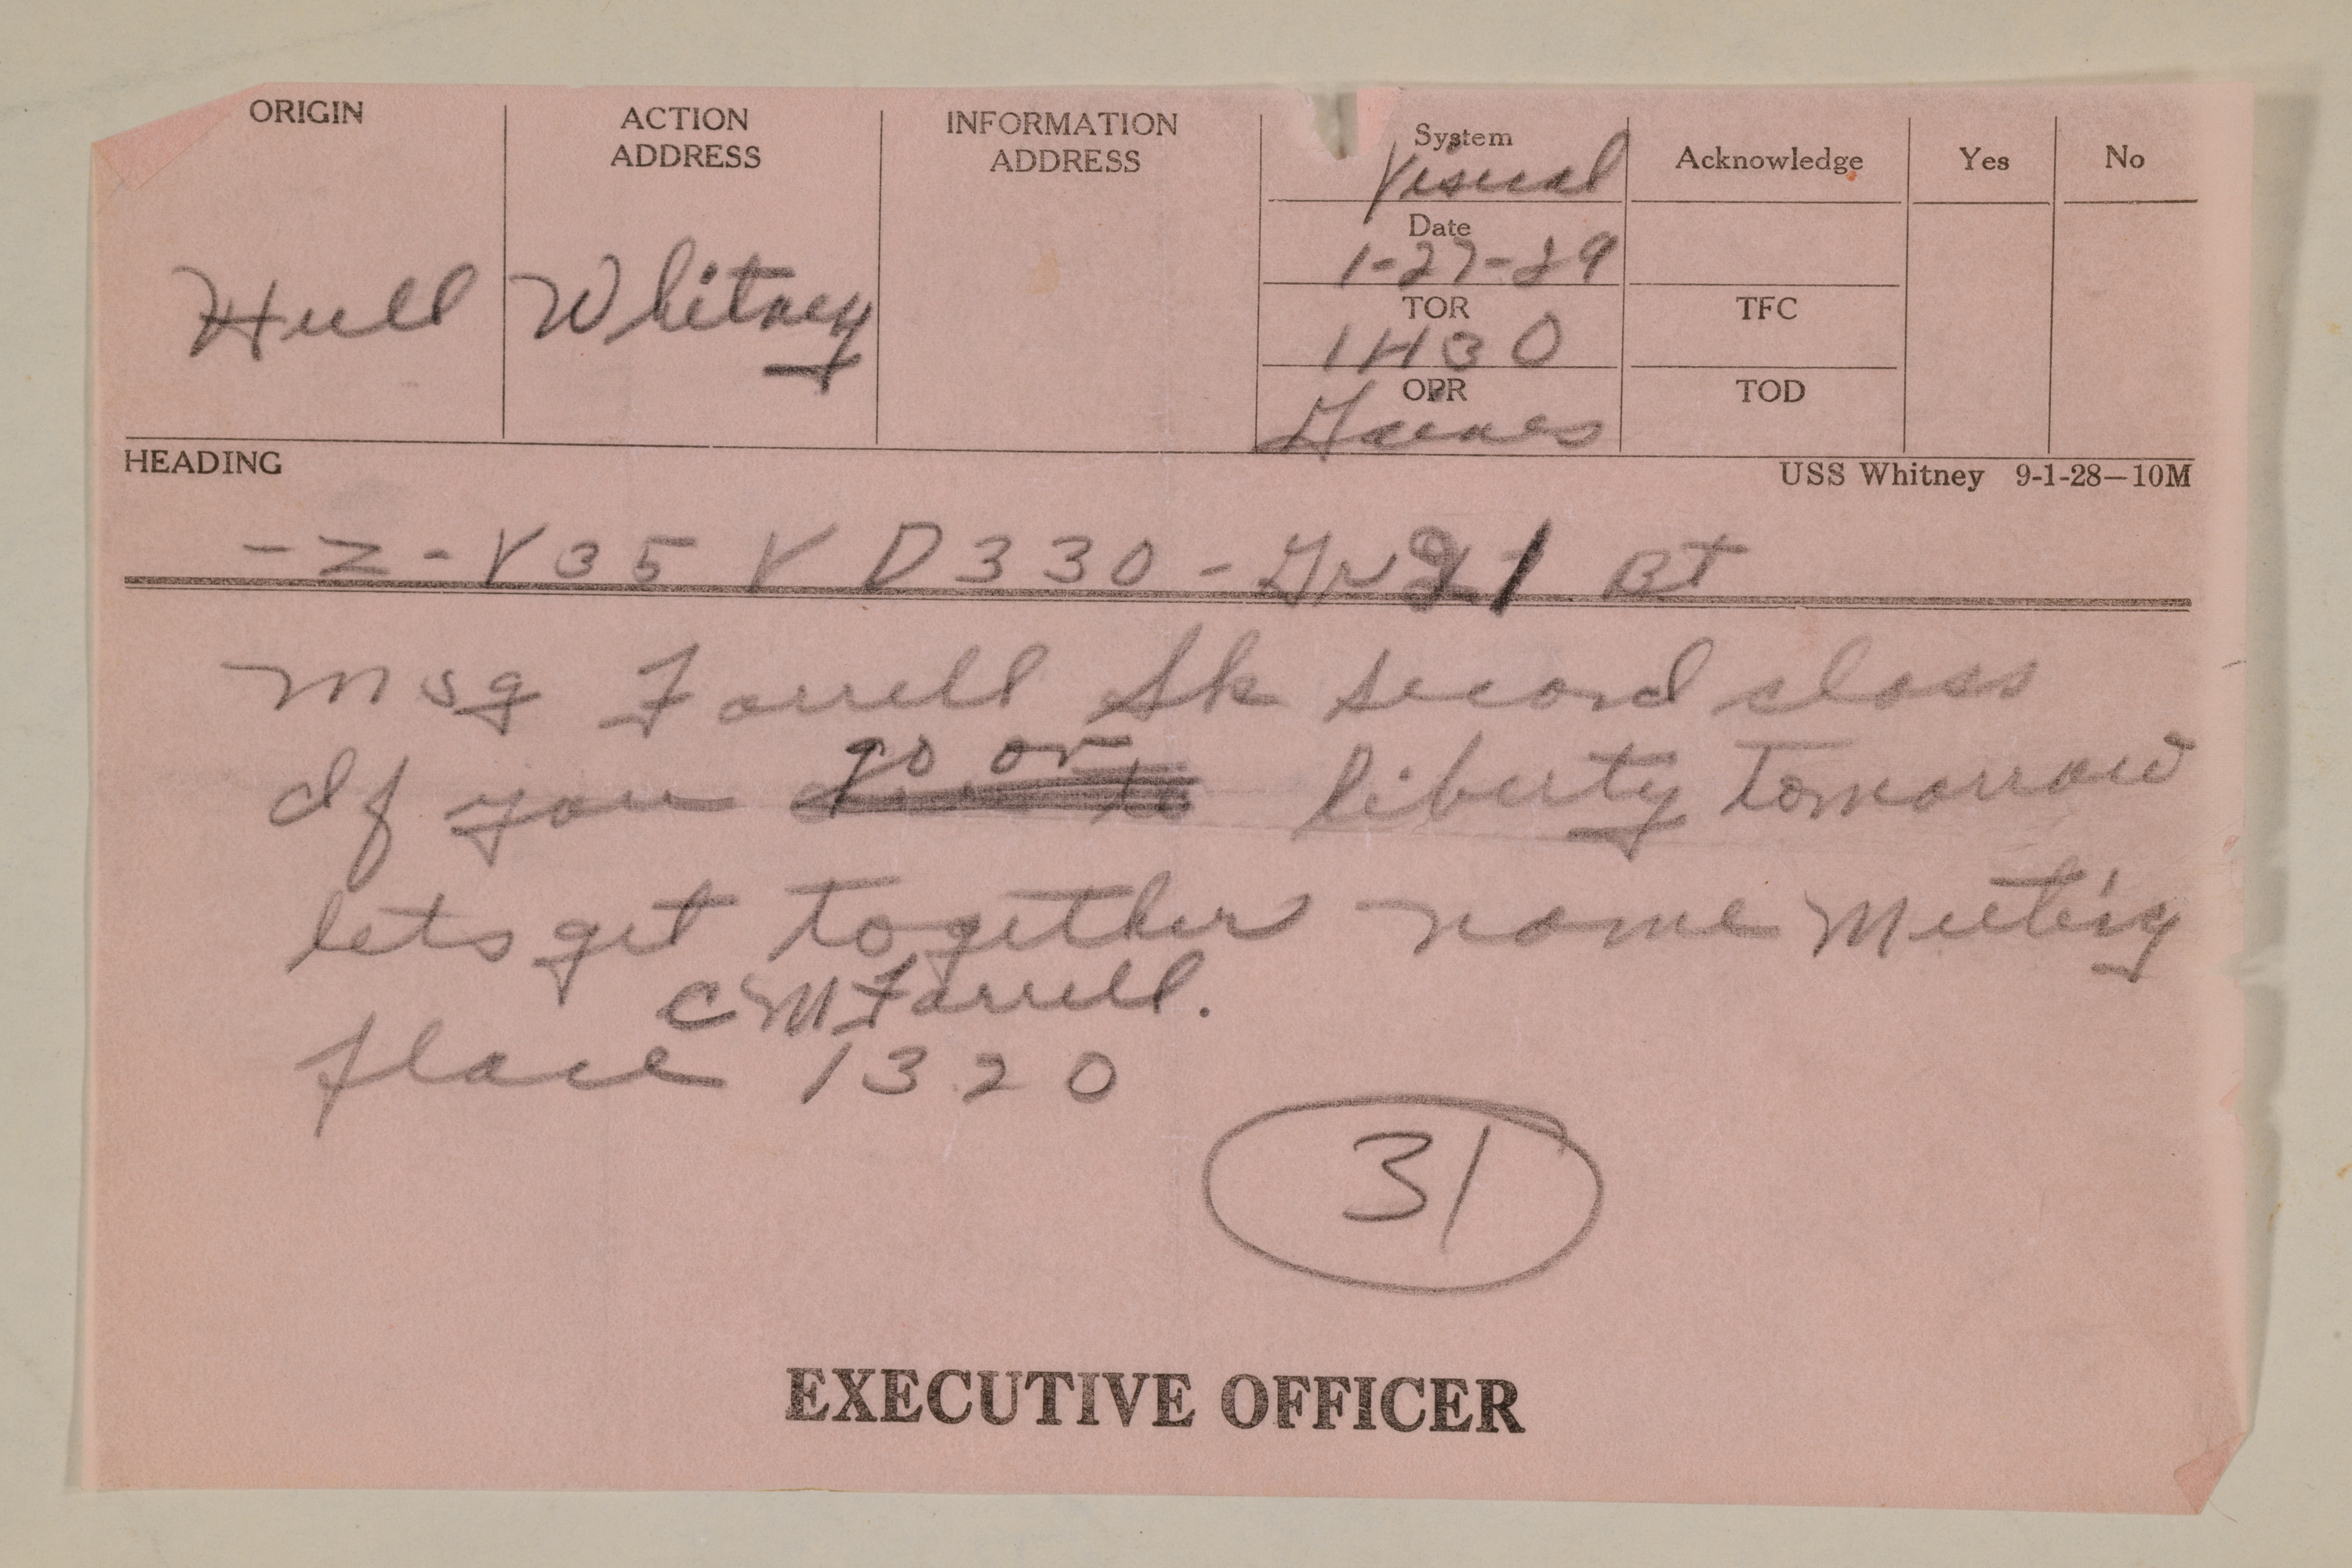 ORIGIN
ACTION ADDRESS
INFORMATION ADDRESS
System
Visual
Acknowledge
Yes
No
Date
1-27-29
Hull
Whitney
TOR
1430
TFC
OPR
TOD
HEADING
USS Whitney 9-1-28—10M
-Z-V35 V D330-Gr21 BT
Msg Farrell Sk second class
If you go on liberty tomorrow
lets get together name Meeting
C M Farrell.
place 1320
31
EXECUTIVE OFFICER